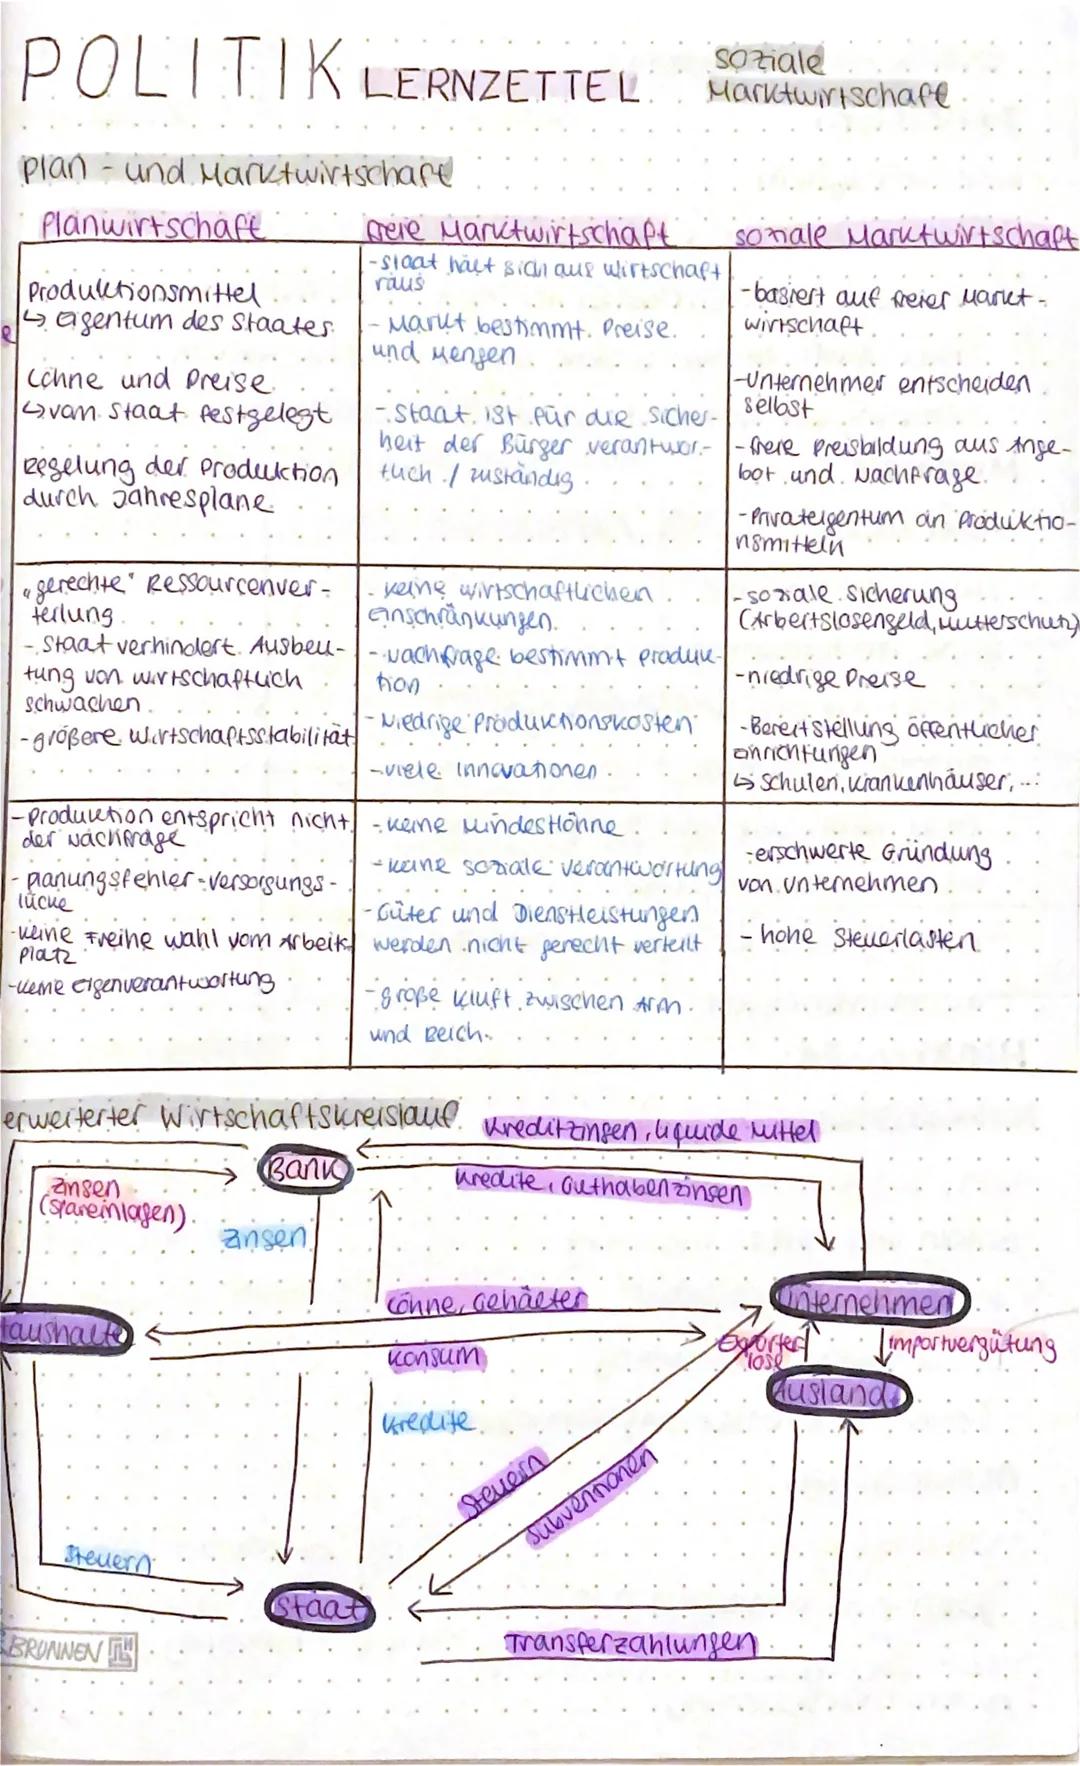 POLITIK LERNZETTEL
soziale
Marktwirtschaft
Plan - und Marktwirtschaft
Planwirtschaft
freie Marktwirtschaft
soziale Marktwirtschaft
Produktionsmittel
↳ Eigentum des Staates
Löhne und Preise
↳ vom Staat festgelegt
Regelung der Produktion
durch Jahrespläne
-Staat hält sich aus Wirtschaft
raus
- Markt bestimmt Preise
und Mengen
- Staat ist für die Sicher-
heit der Bürger verantwor-
tlich / zuständig
-basiert auf freier Markt-
wirtschaft
-Unternehmer entscheiden
selbst
-freie Preisbildung aus Ange-
bot und Nachfrage
-Privateigentum an Produktio-
nsmitteln
"gerechte" Ressourcenver-
teilung
- Staat verhindert Ausbeu-
tung von wirtschaftlich
schwachen
-größere Wirtschaftsstabilität
- keine wirtschaftlichen
Einschränkungen
- Nachfrage bestimmt Produk-
tion
- Niedrige Produktionskosten
-viele Innovationen
-soziale Sicherung
(Arbeitslosengeld, Mutterschutz)
-niedrige Preise
-Bereitstellung öffentlicher
Einrichtungen
↳ Schulen, Krankenhäuser, ...
-Produktion entspricht nicht
der Nachfrage
- Planungsfehler-Versorgungs-
lücke
-keine Freihe Wahl vom Arbeits
platz
-keine Eigenverantwortung
- keine Mindestlöhne
- keine soziale Verantwortung
-Güter und Dienstleistungen
werden nicht gerecht verteilt
-große Kluft zwischen Arm
und Reich.
-erschwerte Gründung
von Unternehmen
- hohe Steuerlasten
erweiterter Wirtschaftskreislauf
Kreditzinsen, liquide Mittel
Bank
Kredite, Guthabenzinsen
Zinsen
(Spareinlagen)
Zinsen
Löhne, Gehälter
Unternehmen
Haushalte
Konsum
Exporter
löse
Importvergütung
Ausland
Kredite
Steuern
Subventionen
Steuern
Staat
Transferzahlungen
BRUNNEN